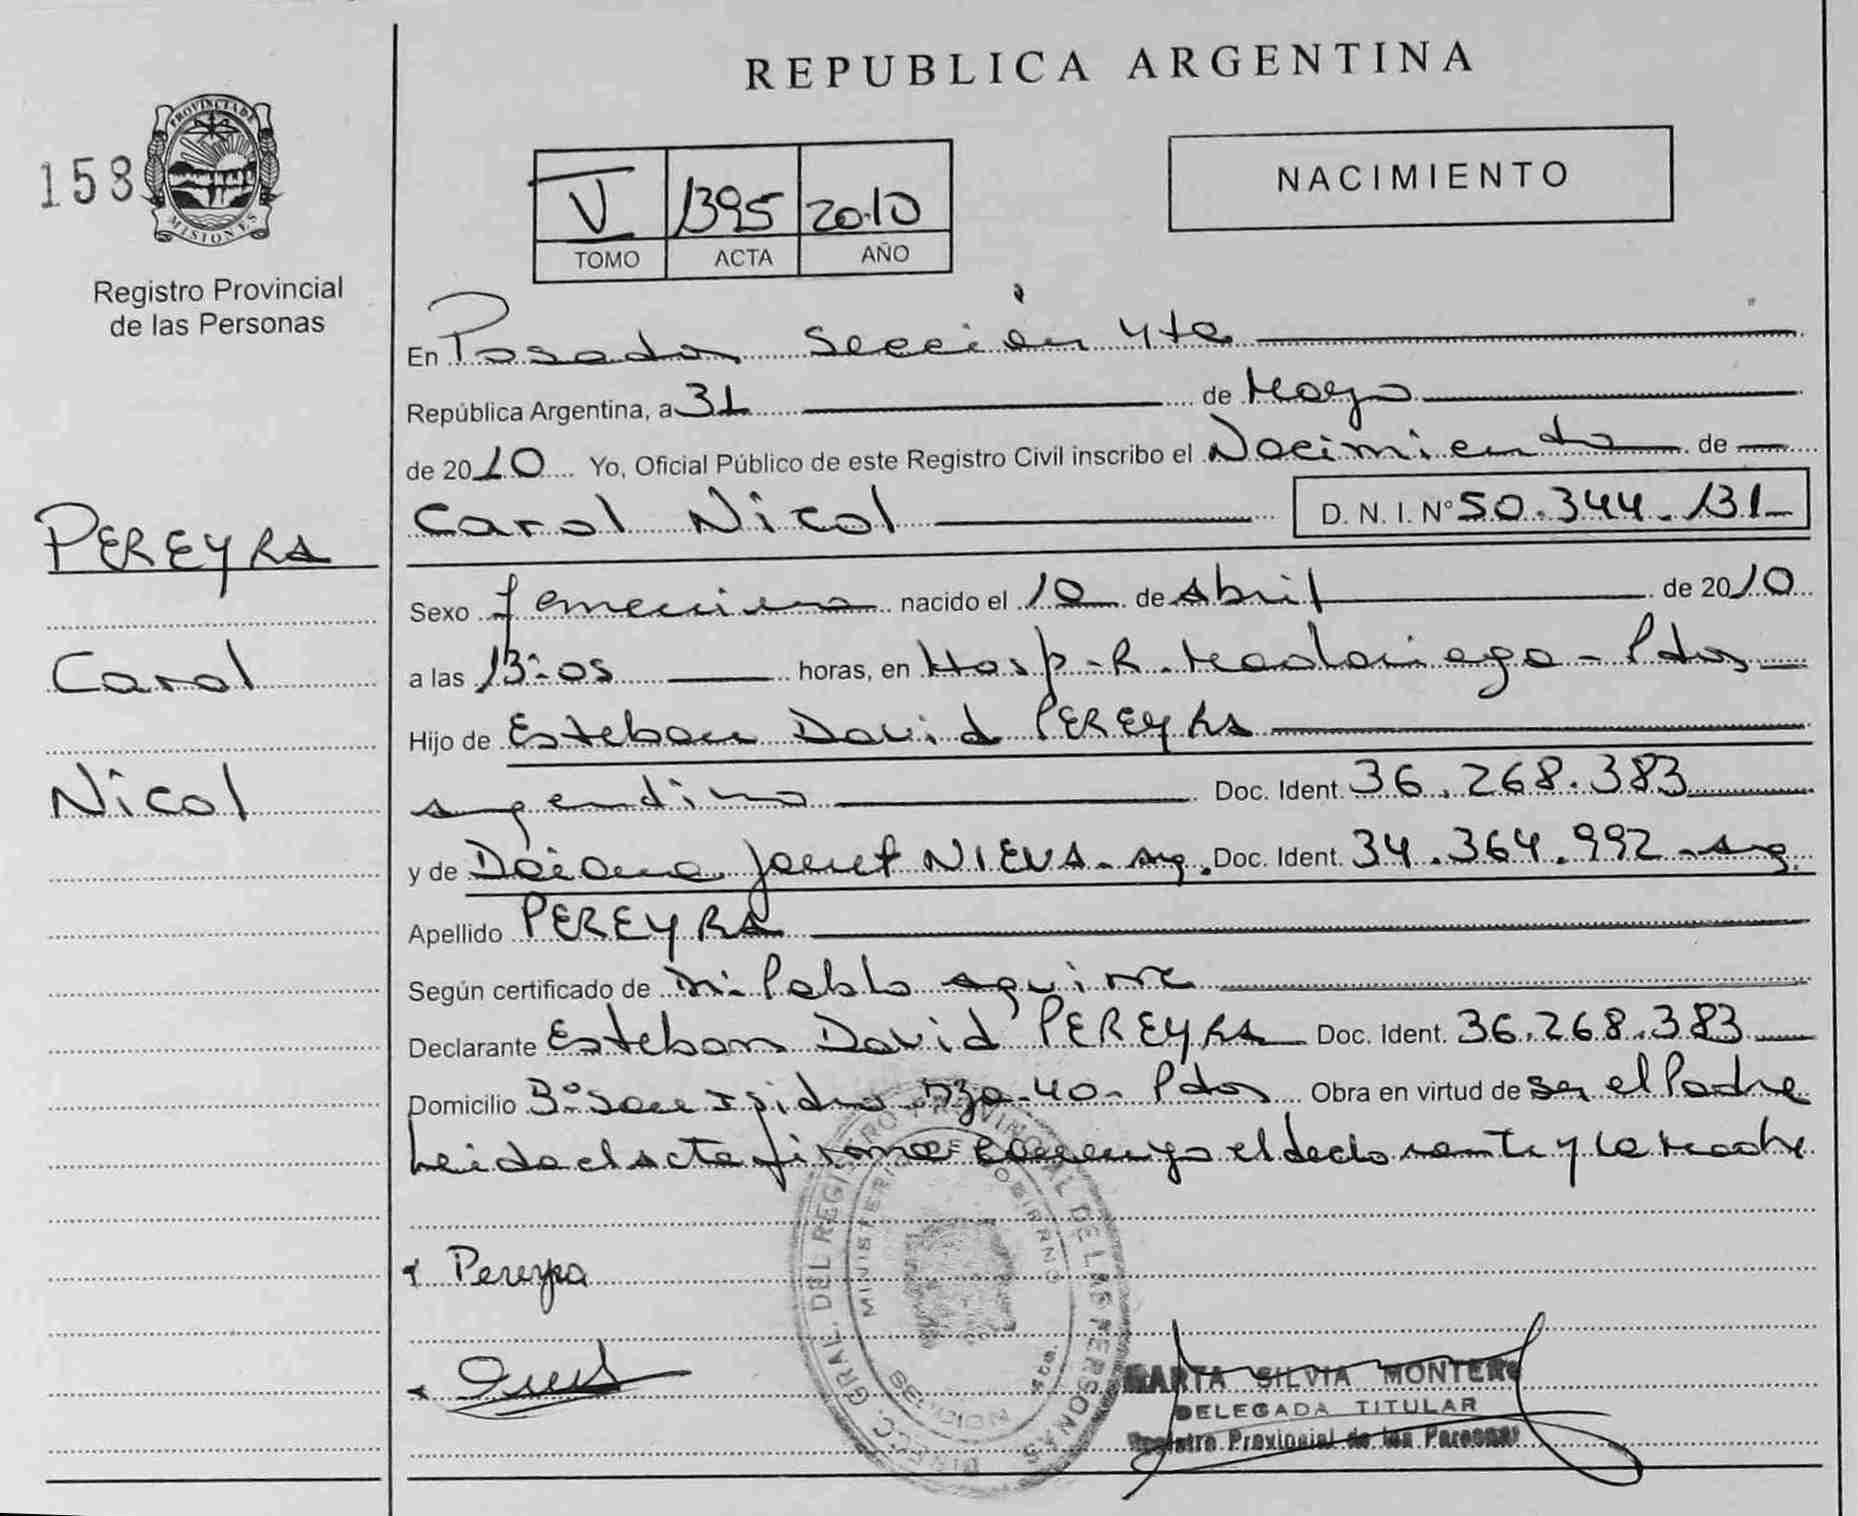 REPUBLICA ARGENTINA
158
PROVINCIA DE
MISIONES
Registro Provincial
de las Personas
V 1395 2010
TOMO ACTA AÑO
NACIMIENTO
En Posadas Sección 4ta
República Argentina, a 31 de Mayo
de 2010 Yo, Oficial Público de este Registro Civil inscribo el Nacimiento de
Carol Nicol D. N. I. Nº 50.344.131
PEREYRA
Carol
Nicol
Sexo femenino nacido el 10 de Abril de 2010
a las 13:05 horas, en Hosp. R. Madariaga - Pdas
Hijo de Esteban David PEREYRA
argentino Doc. Ident. 36.268.383
y de Daiana Janet NIEVA - arg. Doc. Ident. 34.364.992 - arg.
Apellido PEREYRA
Según certificado de Dr. Pablo Aguirre
Declarante Esteban David PEREYRA Doc. Ident. 36.268.383
Domicilio Bº San Isidro 40 - Pdas Obra en virtud de ser el Padre
Leida el acta firman conmigo el declarante y la Madre
Pereyra
DIRECC. GRAL. DEL REGISTRO PROVINCIAL DE LAS PERSONAS
MINISTERIO GOBIERNO
MARTA SILVIA MONTERO
DELEGADA TITULAR
Registro Provincial de las Personas